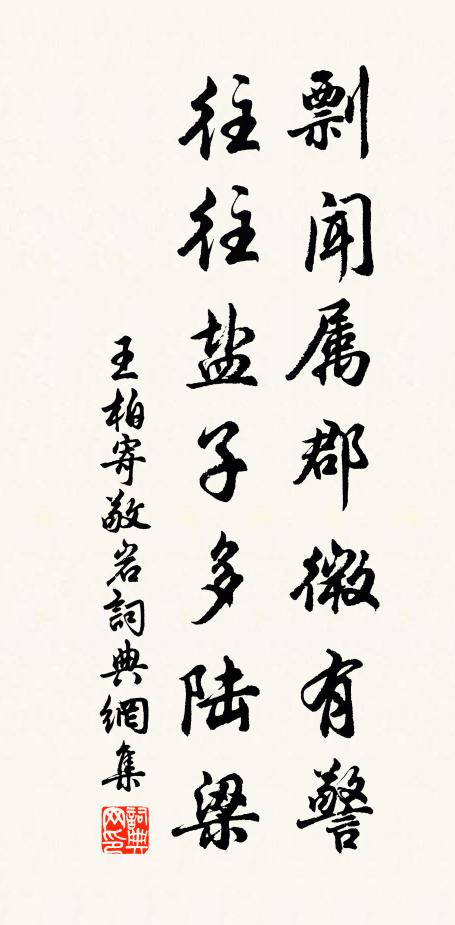 剽闻属郡微有警
往往盐子多陆梁
王柏寄敬岩詞典網集
詞典网印